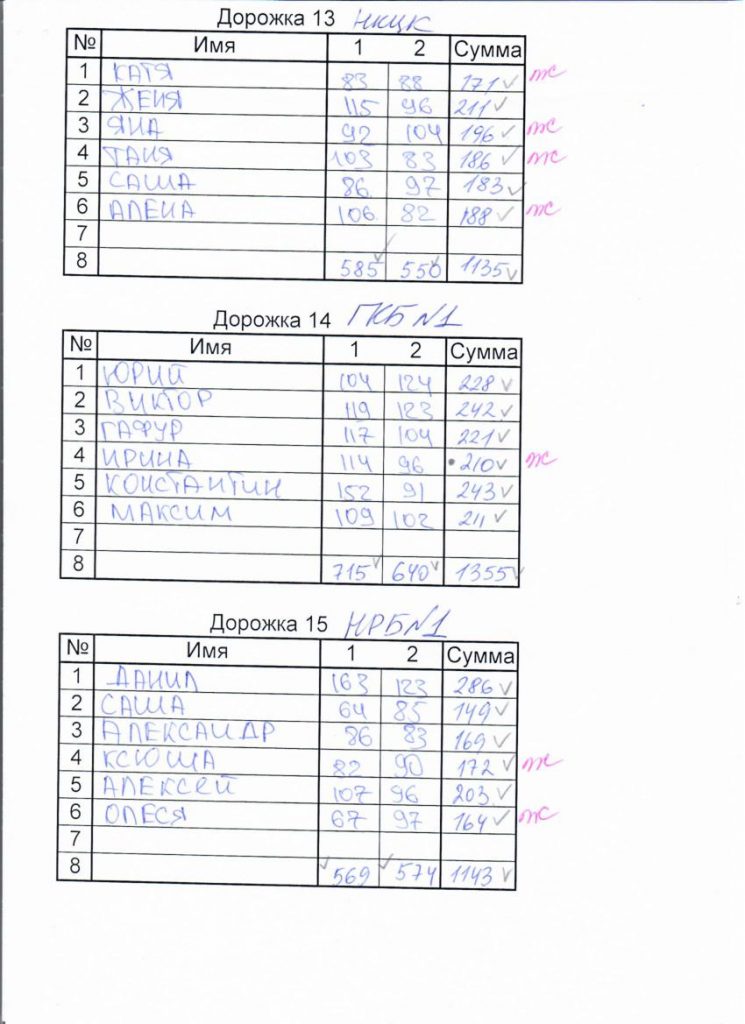 Дорожка 13 НКЦК
№ Имя 1 2 Сумма
1 КАТЯ 83 88 171 ✓ ж
2 ЖЕНЯ 115 96 211 ✓
3 ЯНА 92 104 196 ✓ ж
4 ТАНЯ 103 83 186 ✓ ж
5 САША 86 97 183 ✓
6 АЛЕНА 106 82 188 ✓ ж
7
8 585 ✓ 550 ✓ 1135 ✓
Дорожка 14 ГКБ№1
№ Имя 1 2 Сумма
1 ЮРИЙ 104 124 228 ✓
2 ВИКТОР 119 123 242 ✓
3 ГАФУР 117 104 221 ✓
4 ИРИНА 114 96 210 ✓ ж
5 КОНСТАНТИН 152 91 243 ✓
6 МАКСИМ 109 102 211 ✓
7
8 715 ✓ 640 ✓ 1355 ✓
Дорожка 15 НРБ№1
№ Имя 1 2 Сумма
1 ДАНИЛ 163 123 286 ✓
2 САША 64 85 149 ✓
3 АЛЕКСАНДР 86 83 169 ✓
4 КСЮША 82 90 172 ✓ ж
5 АЛЕКСЕЙ 107 96 203 ✓
6 ОЛЕСЯ 67 97 164 ✓ ж
7
8 ✓ 569 ✓ 574 1143 ✓